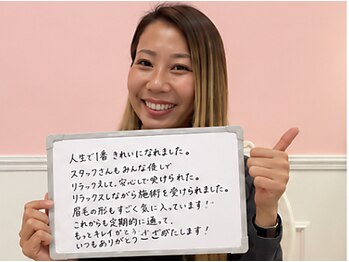 人生で1番 きれいになれました。
スタッフさんもみんな優しで
リラックスして、安心して受けられた。
リラックスしながら施術を受けられました。
眉毛の形もすごく気に入っています！
これからも定期的に通って、
もっとキレイが
いつもありがとう